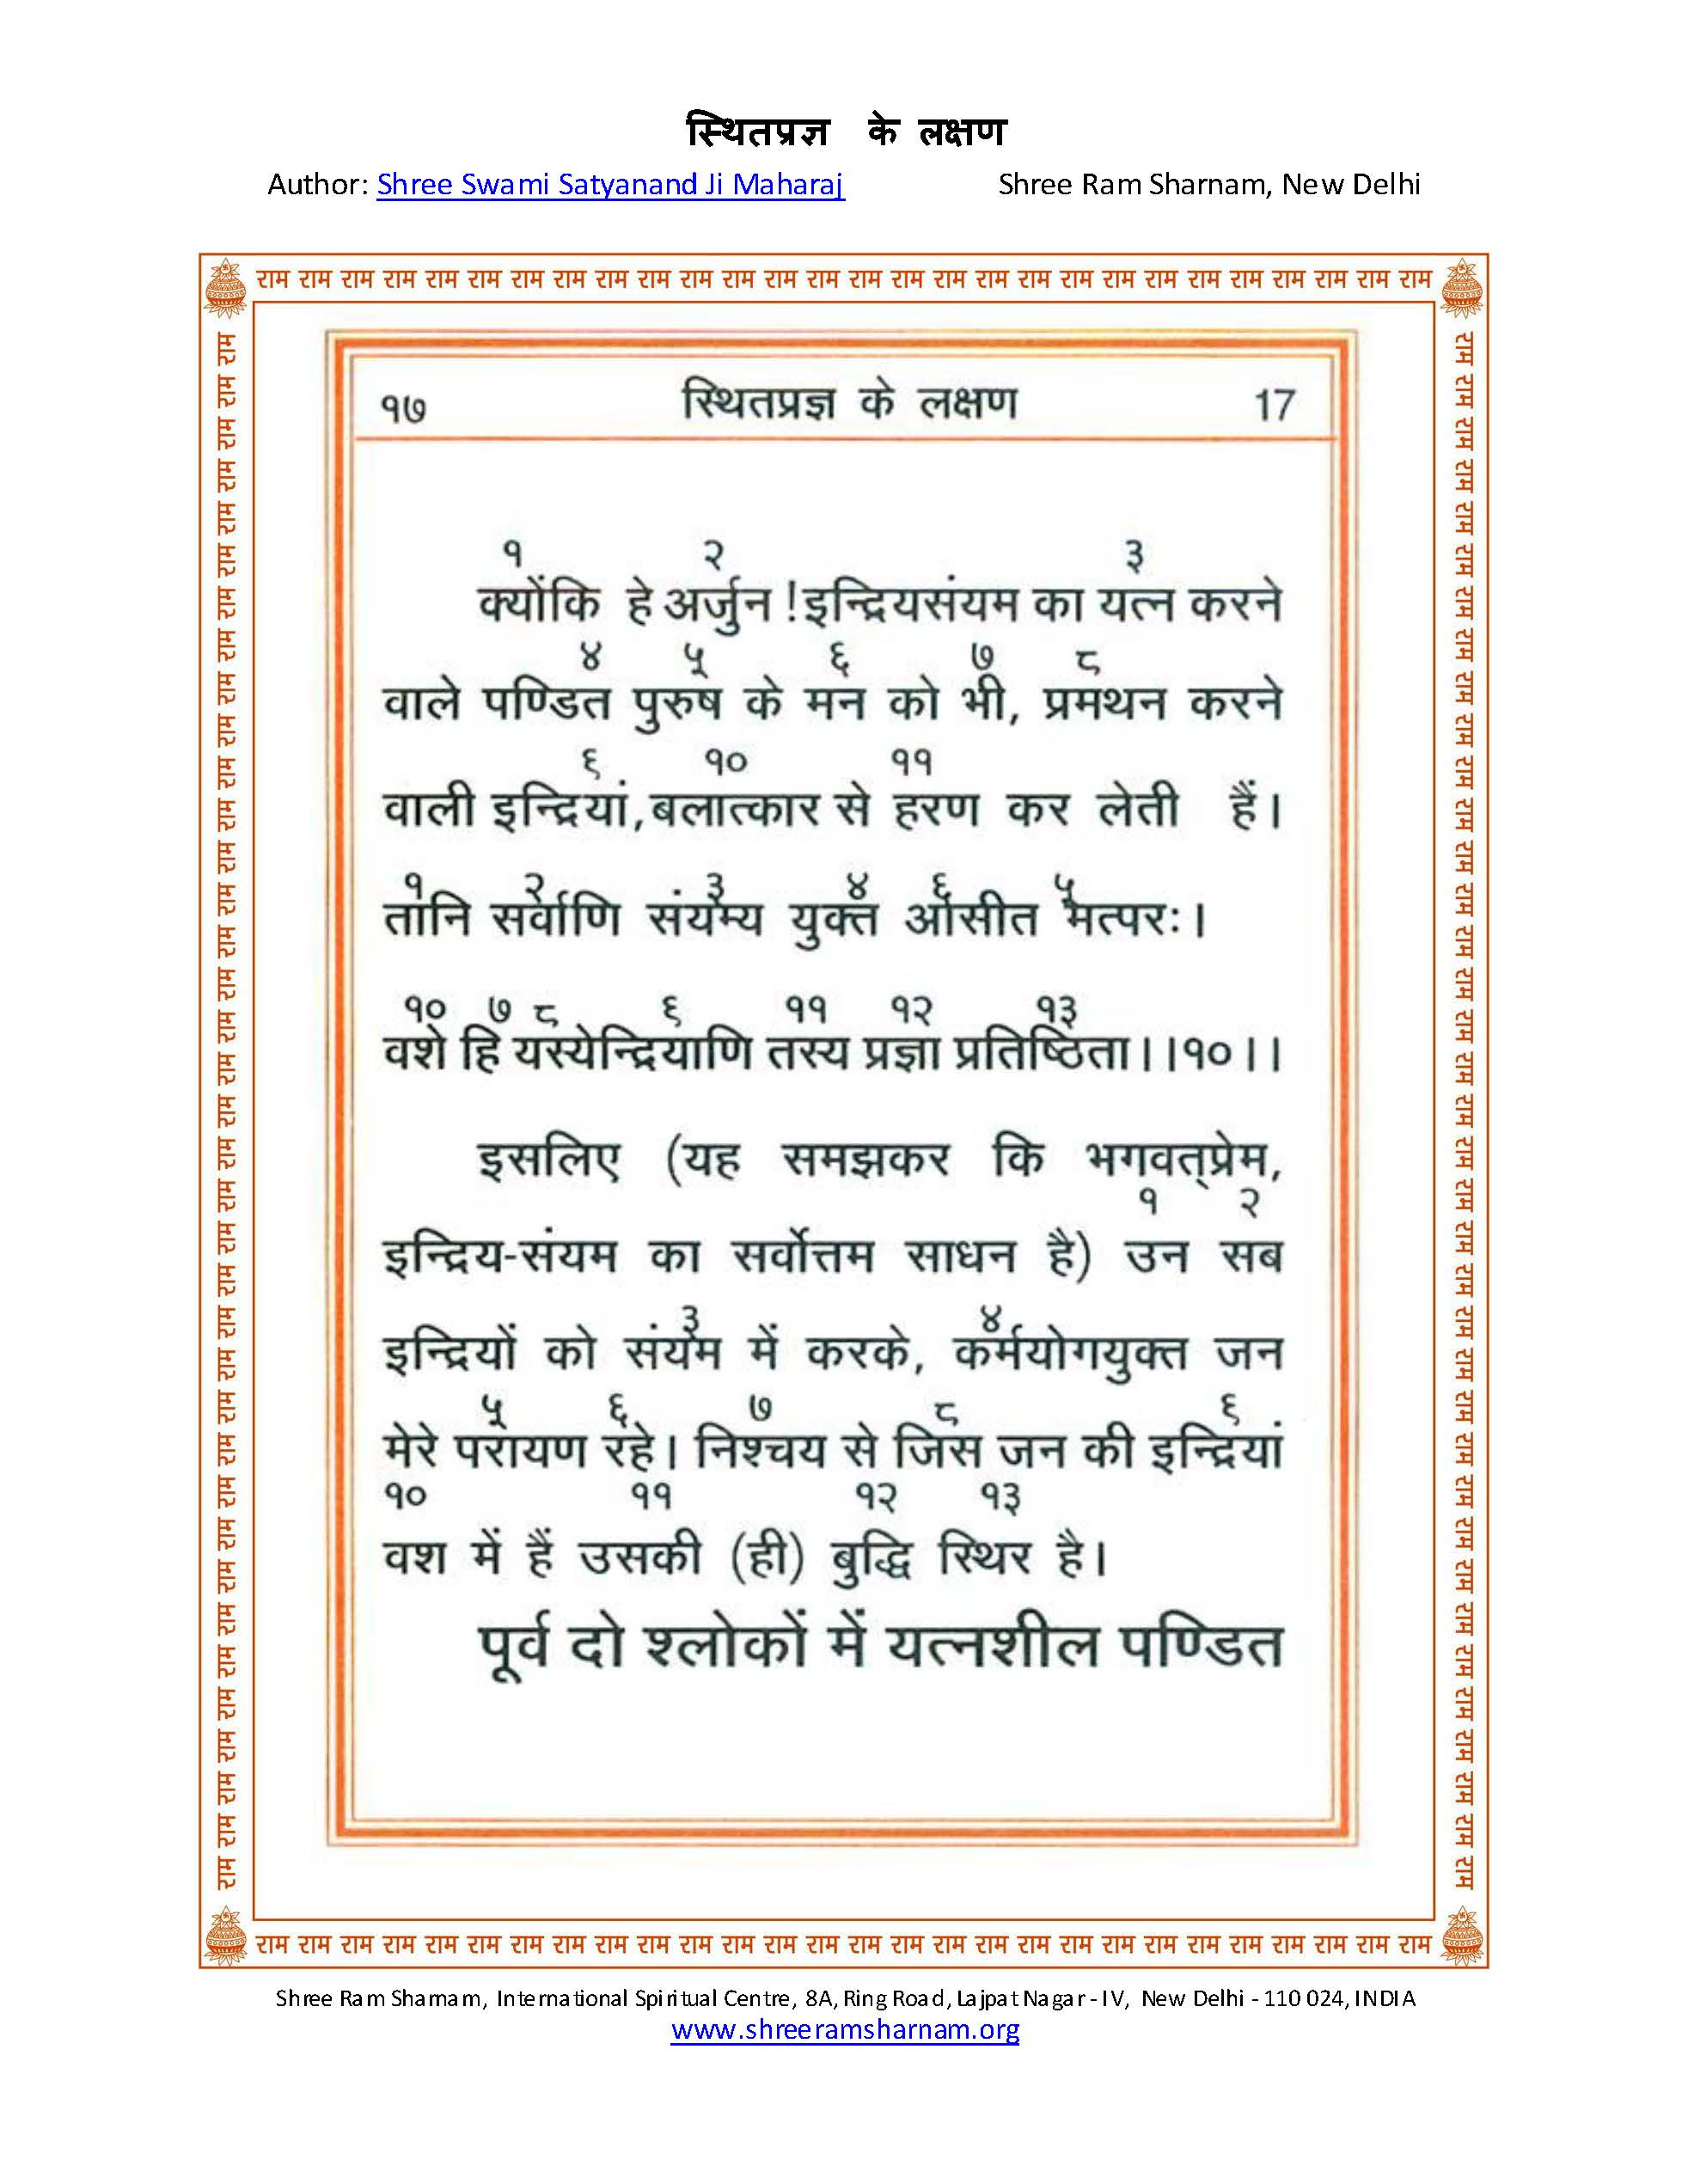 स्थितप्रज्ञ के लक्षण
Author: Shree Swami Satyanand Ji Maharaj Shree Ram Sharnam, New Delhi
राम राम राम राम राम राम राम राम राम राम राम राम राम राम राम राम राम राम राम राम राम राम राम राम राम राम राम राम
१७ स्थितप्रज्ञ के लक्षण 17
१ २ ३
क्योंकि हे अर्जुन ! इन्द्रियसंयम का यत्न करने
४ ५ ६ ७ ८
वाले पण्डित पुरुष के मन को भी, प्रमथन करने
६ १० ११
वाली इन्द्रियां, बलात्कार से हरण कर लेती हैं।
१ २ ३ ४ ६ ५
तानि सर्वाणि संयम्य युक्त आसीत मत्परः।
१० ७ ८ ६ ११ १२ १३
वशे हि यस्येन्द्रियाणि तस्य प्रज्ञा प्रतिष्ठिता।।१०।।
इसलिए (यह समझकर कि भगवत्प्रेम,
१ २
इन्द्रिय-संयम का सर्वोत्तम साधन है) उन सब
३ ४
इन्द्रियों को संयम में करके, कर्मयोगयुक्त जन
५ ६ ७ ८ ६
मेरे परायण रहे। निश्चय से जिस जन की इन्द्रियां
१० ११ १२ १३
वश में हैं उसकी (ही) बुद्धि स्थिर है।
पूर्व दो श्लोकों में यत्नशील पण्डित
राम राम राम राम राम राम राम राम राम राम राम राम राम राम राम राम राम राम राम राम राम राम राम राम राम राम राम राम
राम राम राम राम राम राम राम राम राम राम राम राम राम राम राम राम राम राम राम राम राम राम राम राम राम राम राम राम राम राम राम राम राम राम राम राम राम
राम राम राम राम राम राम राम राम राम राम राम राम राम राम राम राम राम राम राम राम राम राम राम राम राम राम राम राम राम राम राम राम राम राम राम राम राम
Shree Ram Sharnam, International Spiritual Centre, 8A, Ring Road, Lajpat Nagar - IV, New Delhi - 110 024, INDIA
www.shreeramsharnam.org